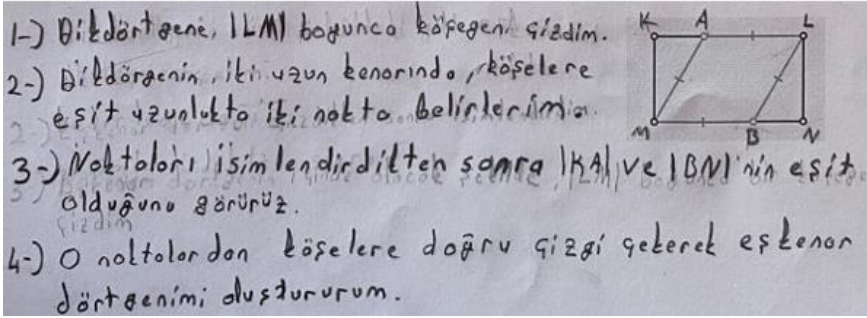 1-) Dikdörtgene, |LM| boyunca köşegeni çizdim.
2-) Dikdörgenin, iki uzun kenarında, köşelere
eşit uzunlukta iki nokta belirlerim.
3-) Noktaları isimlendirdikten sonra |KA| ve |BN|'nin eşit
olduğunu görürüz.
4-) O noktalardan köşelere doğru çizgi çekerek eşkenar
dörtgenimi oluştururum.
K A L
M B N